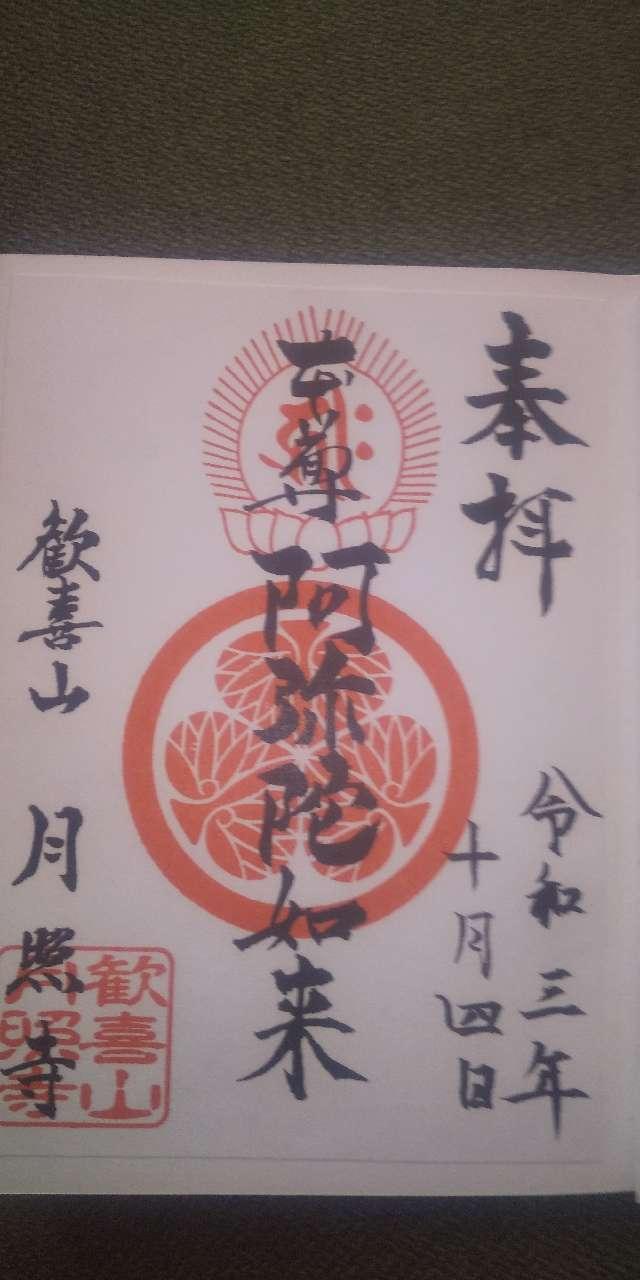 奉拝
令和三年
十月四日
本尊 阿弥陀如来
歓喜山 月照寺
歓喜山
月照寺